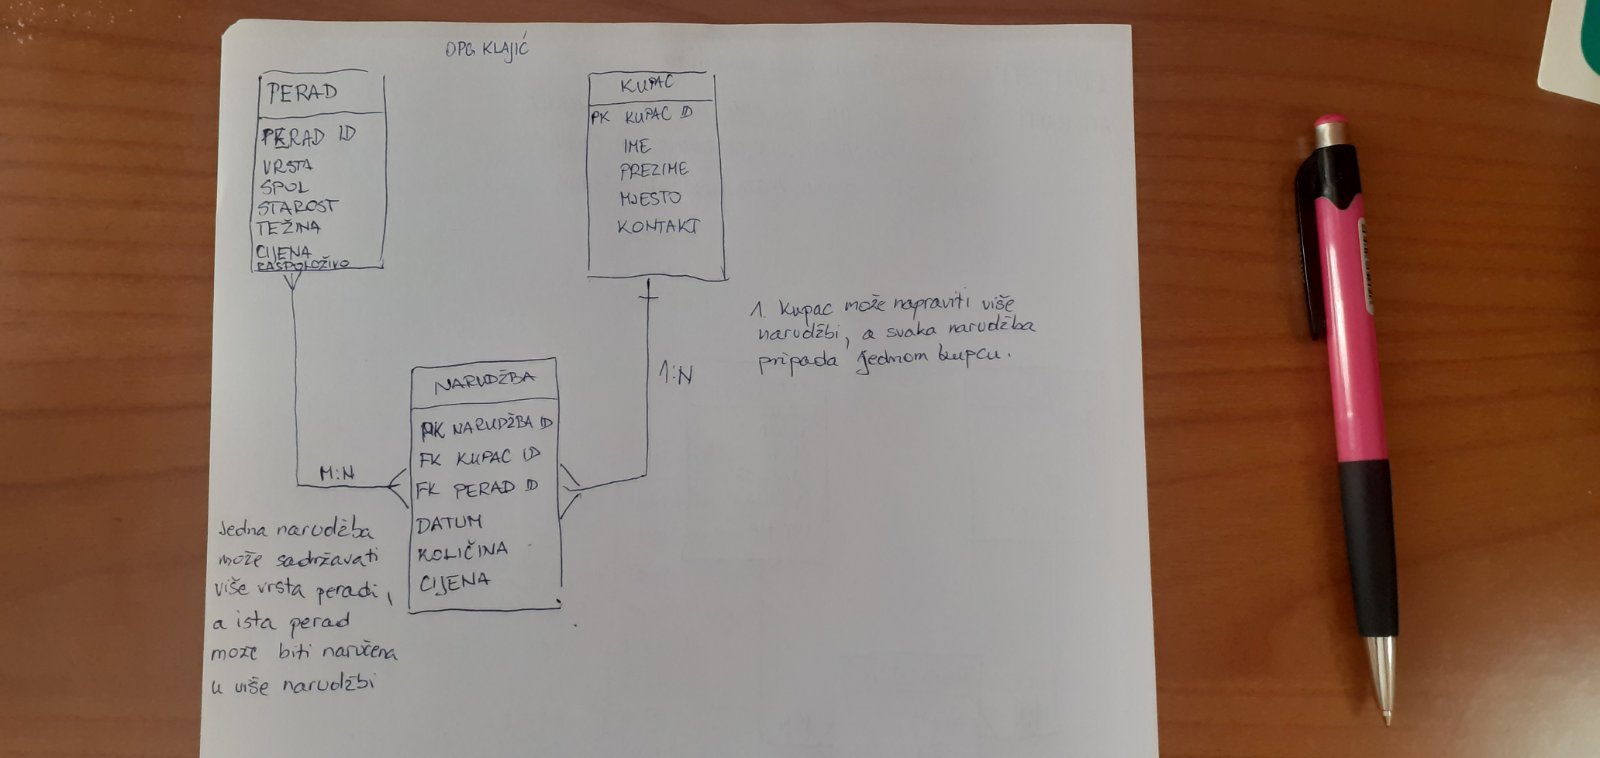 OPG KLAJIĆ
PERAD
PERAD ID
VRSTA
SPOL
STAROST
TEŽINA
CIJENA
RASPOLOŽIVO
KUPAC
PK KUPAC ID
IME
PREZIME
MJESTO
KONTAKT
1. Kupac može napraviti više
narudžbi, a svaka narudžba
pripada jednom kupcu.
1:N
M:N
NARUDŽBA
PK NARUDŽBA ID
FK KUPAC ID
FK PERAD ID
DATUM
KOLIČINA
CIJENA
Jedna narudžba
može sadržavati
više vrsta peradi,
a ista perad
može biti naručena
u više narudžbi